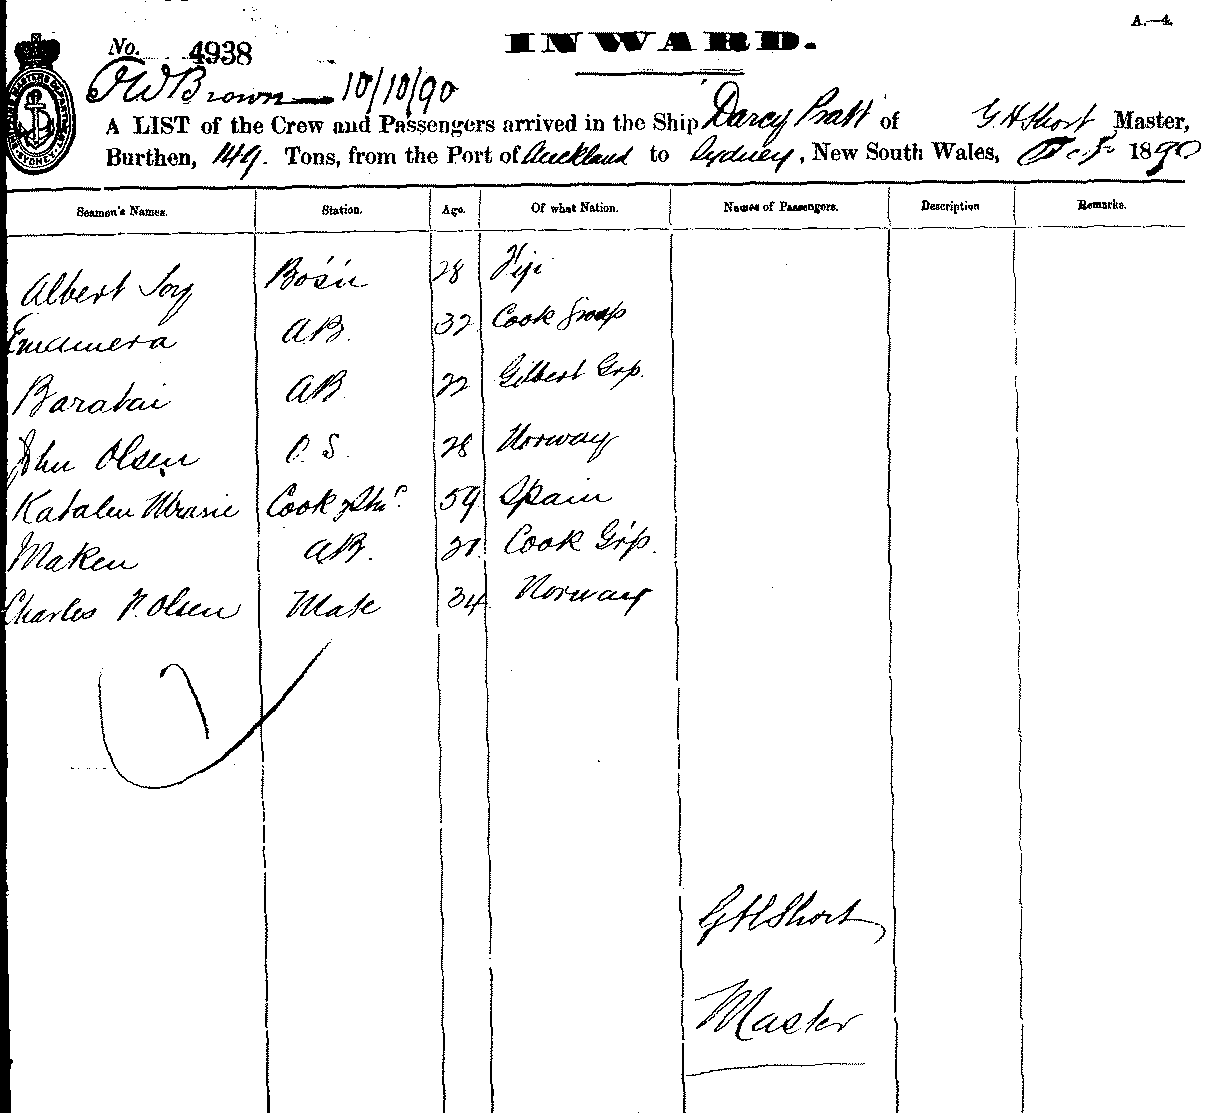 A.—4.
No. 4938
INWARD.
Brown 10/10/90
A LIST of the Crew and Passengers arrived in the Ship Darcy Pratt of G H Short Master,
Burthen, 149. Tons, from the Port of Auckland to Sydney, New South Wales, 1890
Seamen's Names. Station. Age. Of what Nation. Names of Passengers. Description Remarks.
Albert Bos'n 28 Fiji
AB. 32 Cook Group
Baratai AB 22 Gilbert Grp.
John Olsen O.S. 28 Norway
Katalen Cook & 59 Spain
Maken AB. Cook Grp.
Charles P. Olsen Mate 34 Norway
7
G H Short
Master